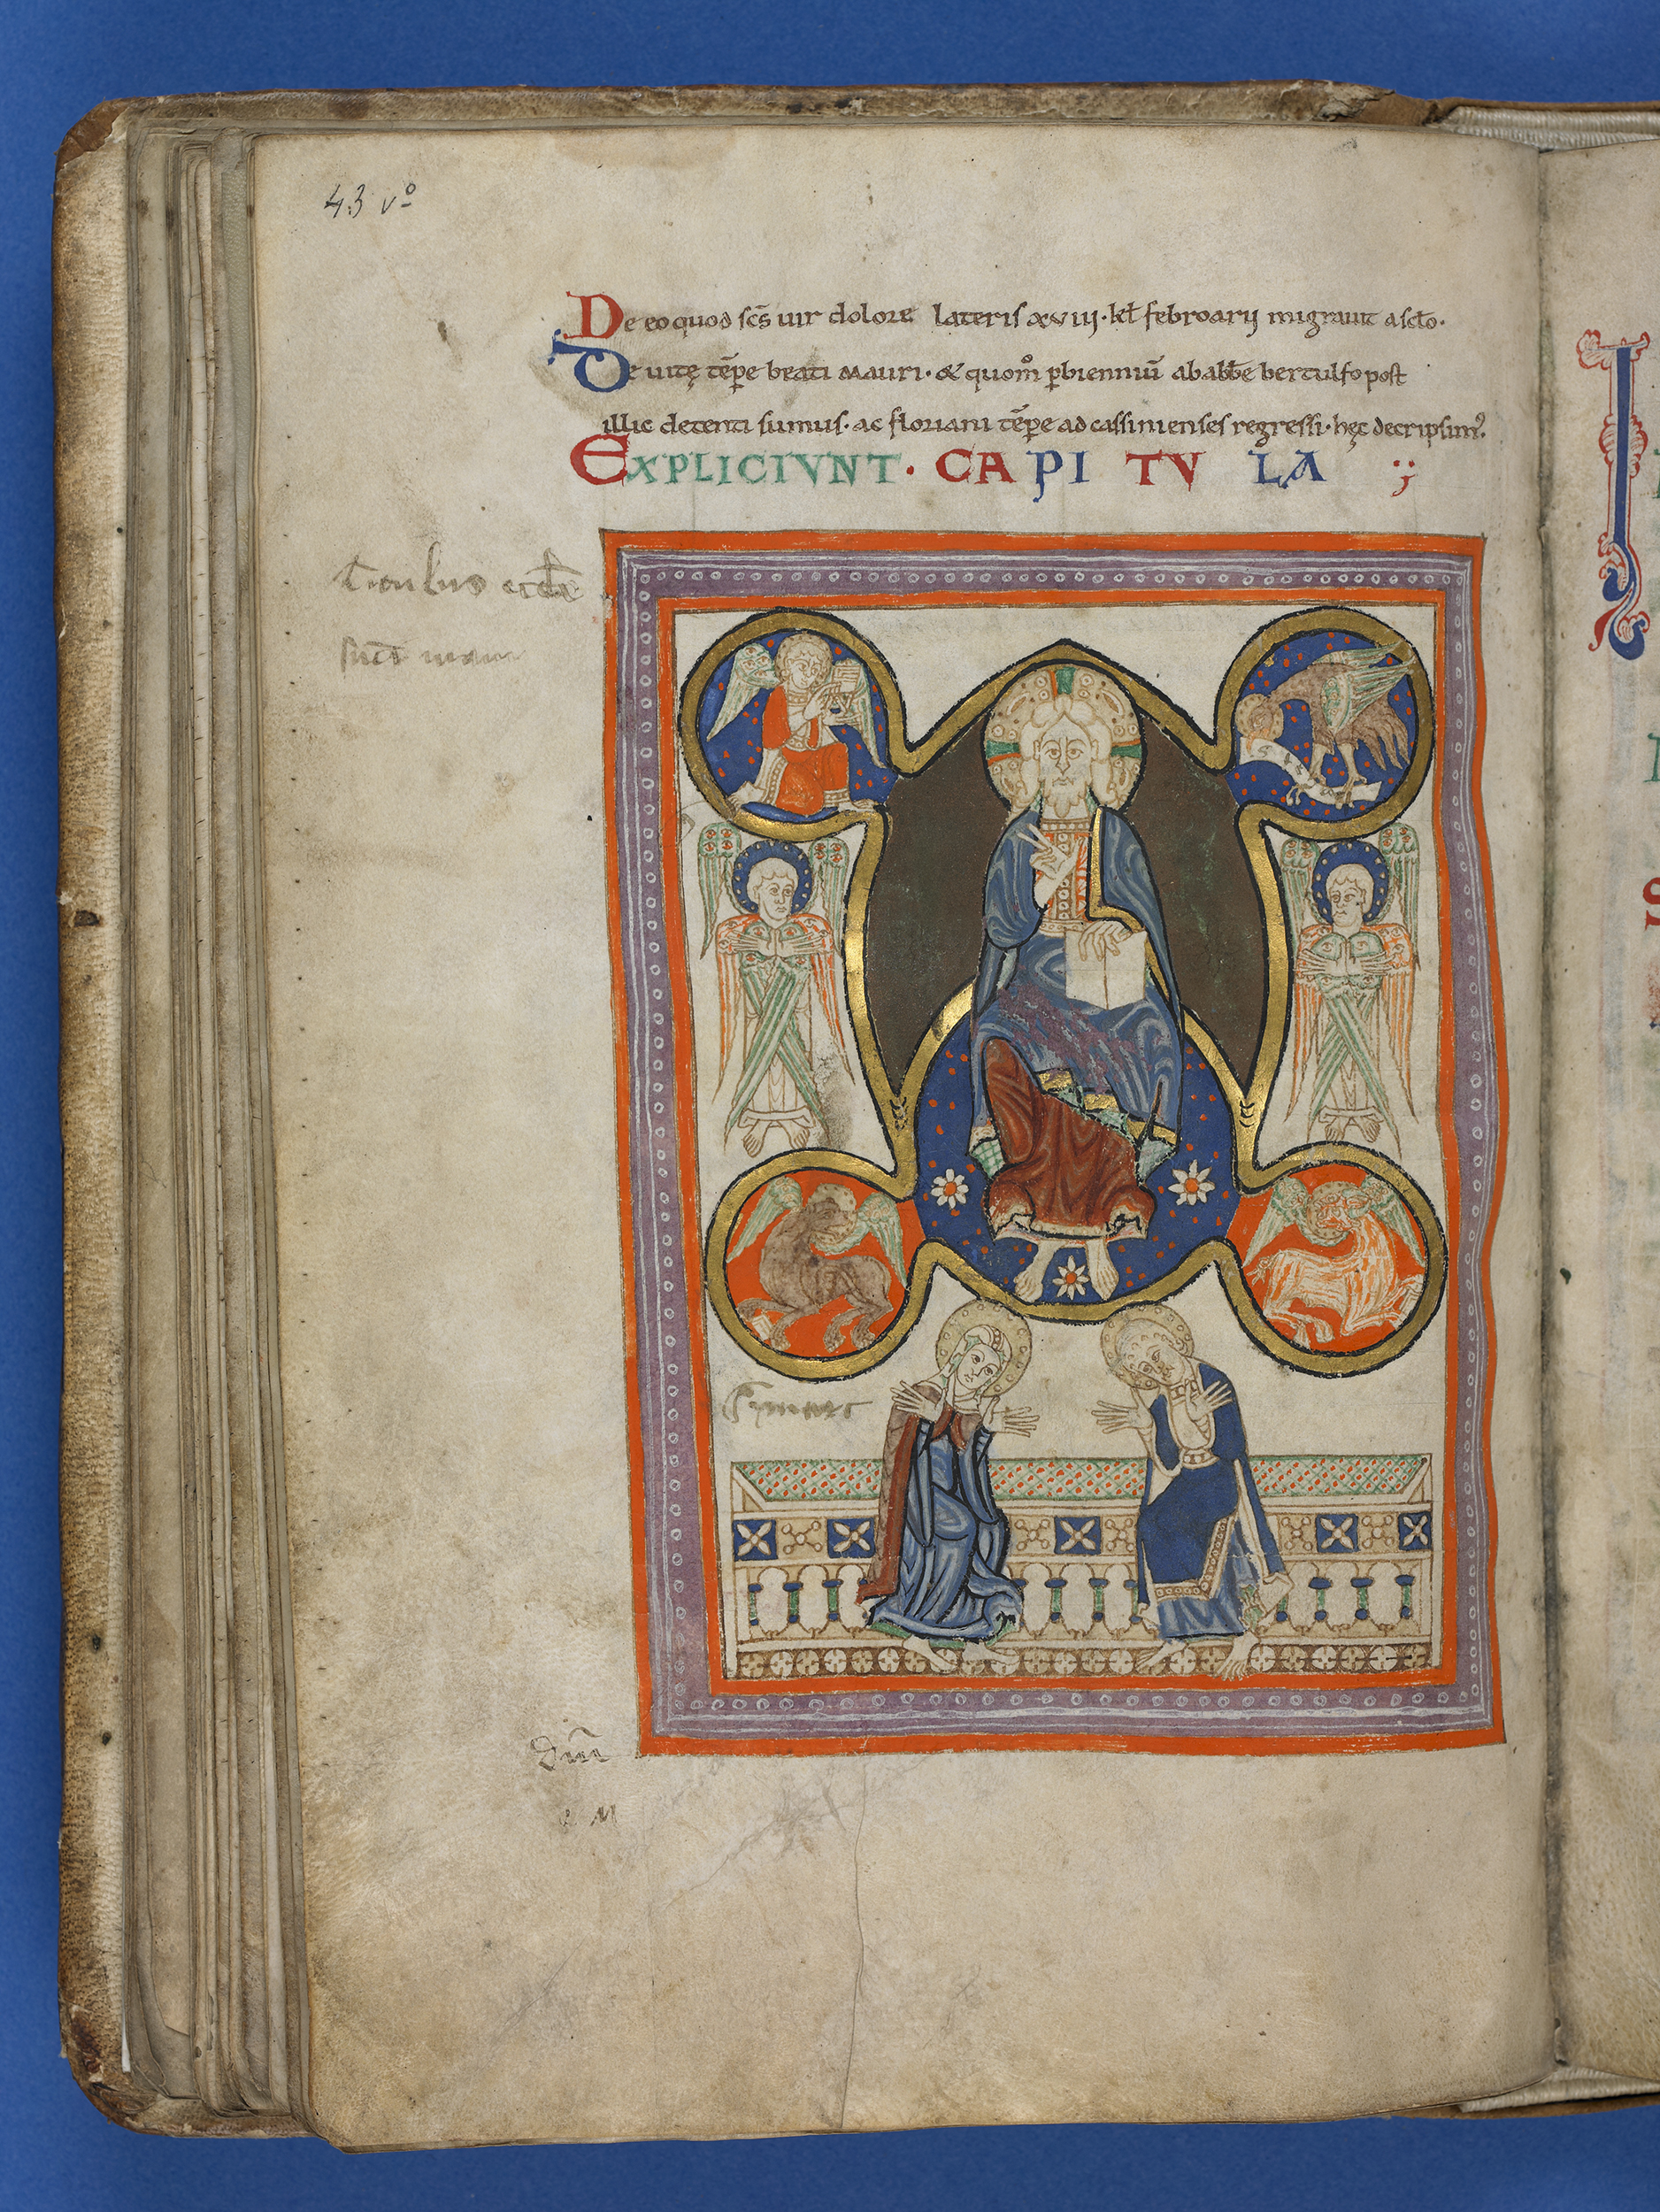 43 vº
De eo quod scs̄ uir dolore lateris xviij · kl̄ febroarij migrauit a sclo ·
De uitę tēpe beati mauri · & quom̊ pbienniū ab abb̄e bertulfo post
illic detenti sumus · ac floriani tēpe ad cassinienses regressi · hęc decripsim⁹.
EXPLICIVNT · CAPITVLA